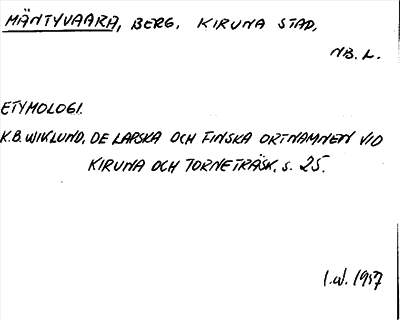 MÄNTYVAARA, BERG. KIRUNA STAD,
NB. L.
ETYMOLOGI.
K.B. WIKLUND, DE LAPSKA OCH FINSKA ORTNAMNEN VID
KIRUNA OCH TORNETRÄSK, s. 25.
I.W. 1957